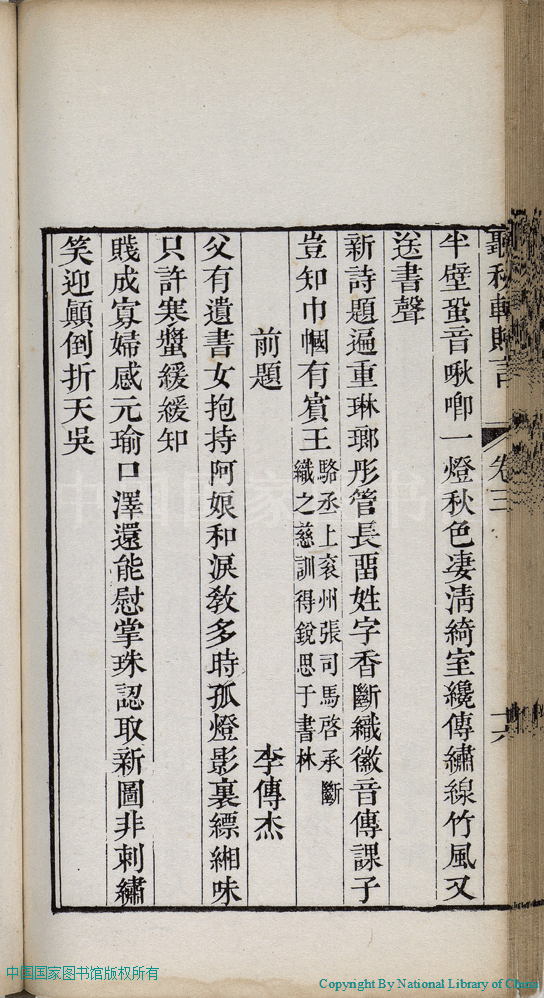 聽秋軒贈言 卷三 十六
半壁蛩音啾唧一燈秋色凄清綺室纔傳繡線竹風又
送書聲
新詩題遍重琳瑯彤管長畱姓字香斷織徽音傳課子
豈知巾幗有賓王駱丞上兗州張司馬啓承斷
織之慈訓得銳思于書林
前題 李傳杰
父有遺書女抱持阿娘和淚敎多時孤燈影裏縹緗味
只許寒螿緩緩知
賤成寡婦感元瑜口澤還能慰掌珠認取新圖非刺繡
笑迎顚倒折天吳
中国国家图书馆
中国国家图书馆版权所有
Copyright By National Library of China